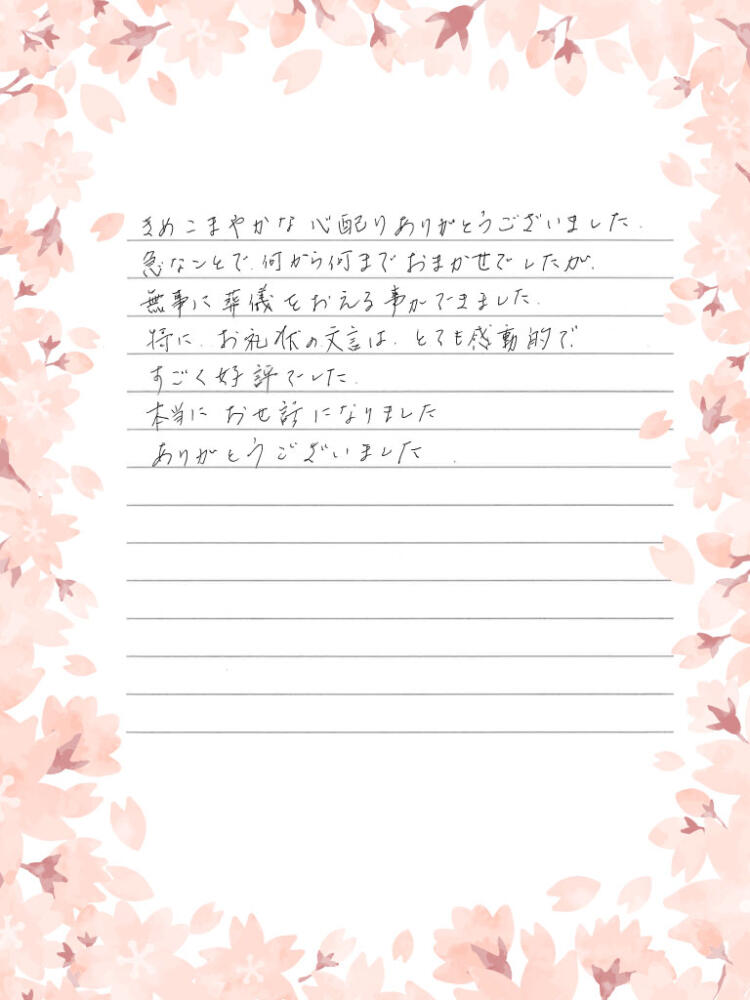 きめこまやかな心配りありがとうございました.
急なことで、何から何までおまかせでしたが、
無事に葬儀をおえる事ができました.
特に、お礼状の文言は、とても感動的で
すごく好評でした.
本当にお世話になりました
ありがとうございました.